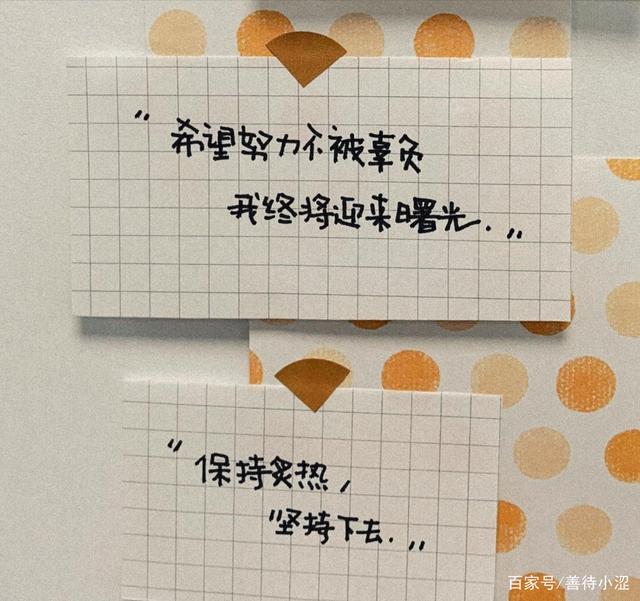 "希望努力不被辜负
我终将迎来曙光."
"保持炙热,
坚持下去."
百家号/善待小涩